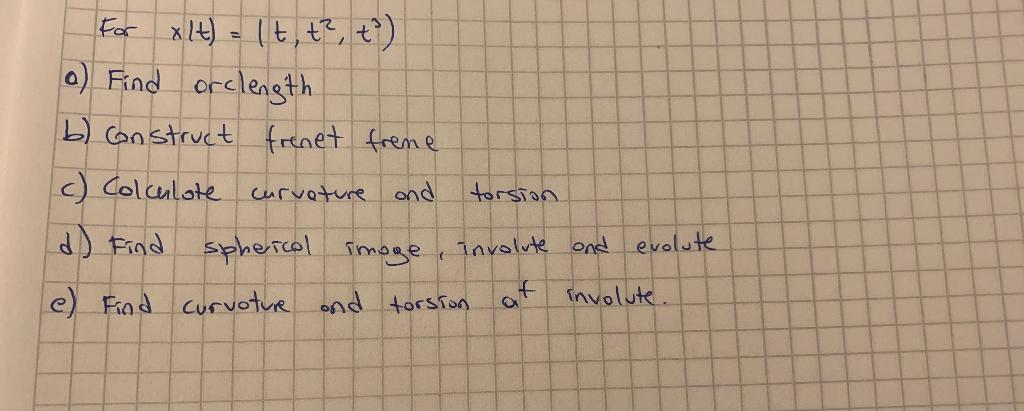 For x(t) = (t, t², t³)
a) Find arclength
b) Construct frenet freme
c) Calculate curvature and torsion
d) Find spherical image, involute and evolute
e) Find curvature and torsion at involute.